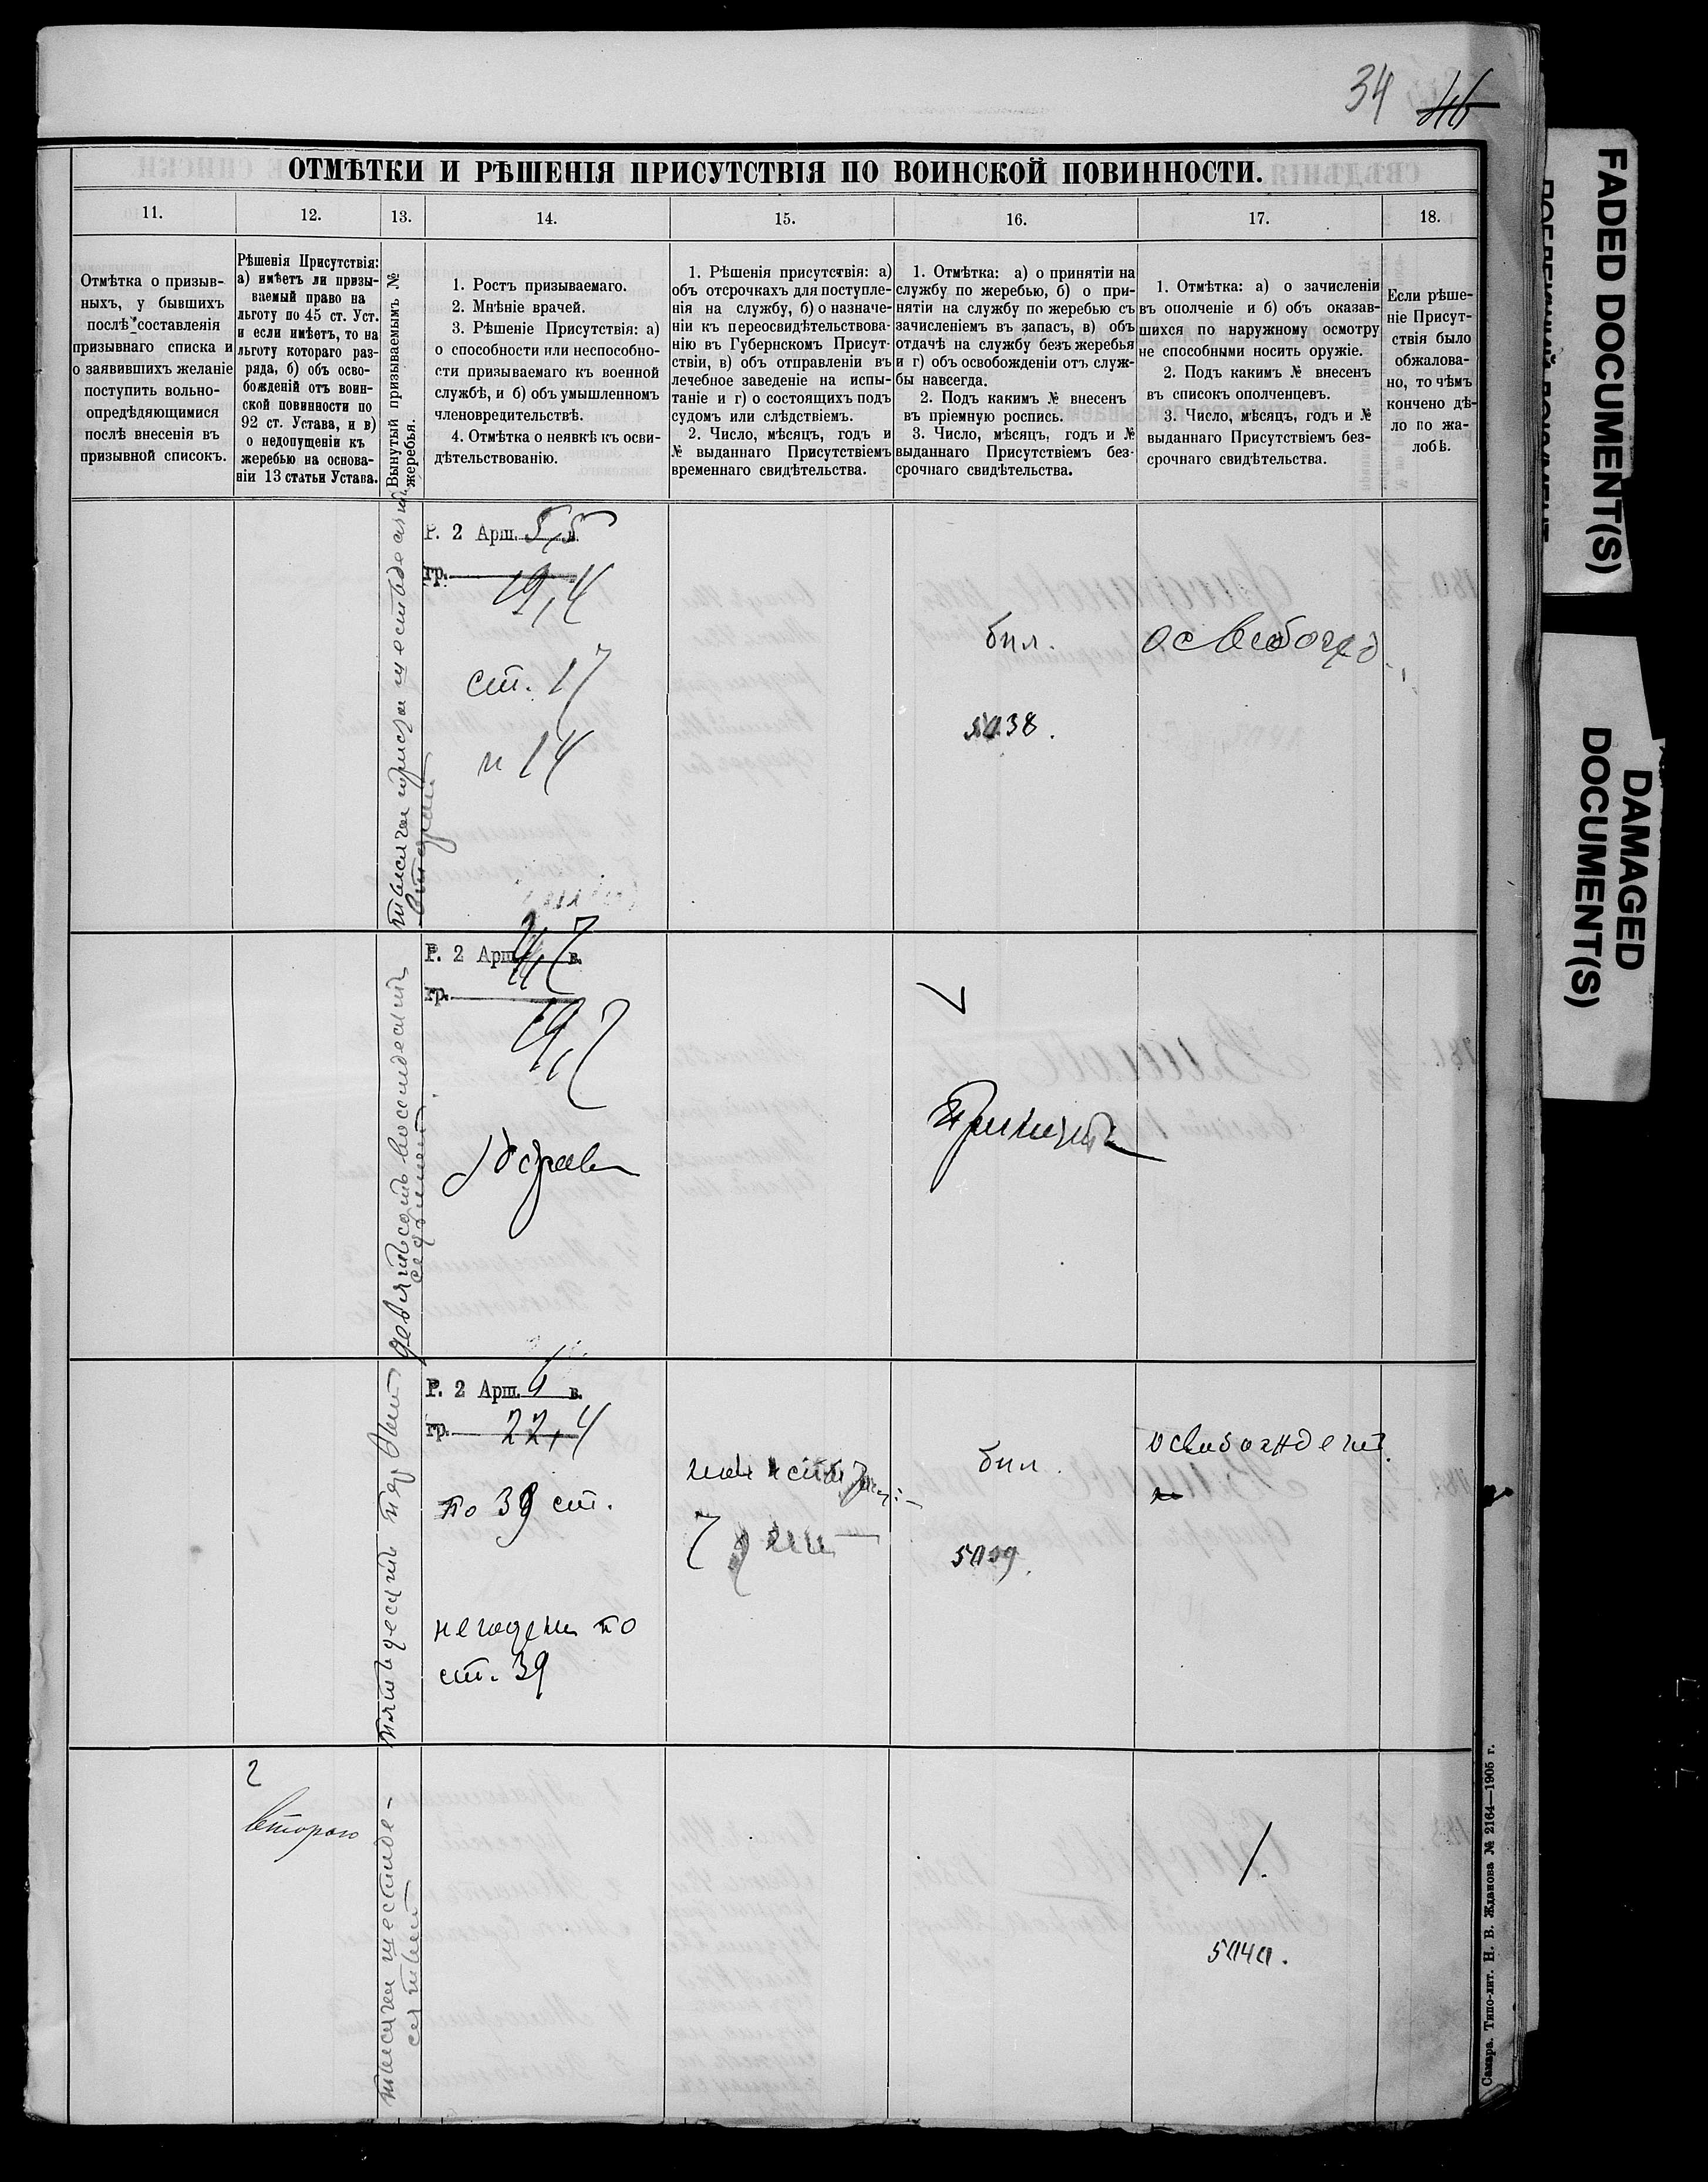 34 46
ОТМѢТКИ И РѢШЕНІЯ ПРИСУТСТВІЯ ПО ВОИНСКОЙ ПОВИННОСТИ.
11.
12.
13.
14.
15.
16.
17.
18.
Отмѣтка о призыв-
ныхъ, у бывшихъ
послѣ составленія
призывнаго списка и
о заявившихъ желаніе
поступить вольно-
опредѣляющимися
послѣ внесенія въ
призывной списокъ.
Рѣшенія Присутствія:
а) имѣетъ ли призы-
ваемый право на
льготу по 45 ст. Уст.
и если имѣетъ, то на
льготу котораго раз-
ряда, б) объ осво-
божденій отъ воин-
ской повинности по
92 ст. Устава, и в)
о недопущеніи къ
жеребью на основа-
ніи 13 статьи Устава.
Вынутый призываемымъ №
жеребья.
1. Ростъ призываемаго.
2. Мнѣніе врачей.
3. Рѣшеніе Присутствія: а)
о способности или неспособно-
сти призываемаго къ военной
службѣ, и б) объ умышленномъ
членовредительствѣ.
4. Отмѣтка о неявкѣ къ осви-
дѣтельствованію.
1. Рѣшенія присутствія: а)
объ отсрочкахъ для поступле-
нія на службу, б) о назначе-
ніи къ переосвидѣтельствова-
нію въ Губернскомъ Присут-
ствіи, в) объ отправленіи въ
лечебное заведеніе на испы-
таніе и г) о состоящихъ подъ
судомъ или слѣдствіемъ.
2. Число, мѣсяцъ, годъ и
№ выданнаго Присутствіемъ
временнаго свидѣтельства.
1. Отмѣтка: а) о принятіи на
службу по жеребью, б) о при-
нятіи на службу по жеребью съ
зачисленіемъ въ запасъ, в) объ
отдачѣ на службу безъ жеребья
и г) объ освобожденіи отъ служ-
бы навсегда.
2. Подъ какимъ № внесенъ
въ пріемную роспись.
3. Число, мѣсяцъ, годъ и №
выданнаго Присутствіемъ без-
срочнаго свидѣтельства.
1. Отмѣтка: а) о зачисленіи
въ ополченіе и б) объ оказав-
шихся по наружному осмотру
не способными носить оружіе.
2. Подъ какимъ № внесенъ
въ списокъ ополченцевъ.
3. Число, мѣсяцъ, годъ и №
выданнаго Присутствіемъ без-
срочнаго свидѣтельства.
Если рѣше-
ніе Присут-
ствія было
обжалова-
но, то чѣмъ
кончено дѣ-
ло по жа-
лобѣ.
Р. 2 Арш. 5,5 в.
гр. 19,4
ст. 17
п 14
бил.
5038.
освобожд.
Р. 2 Арш. в.
гр.
девятьсотъ восемьдесятъ
седьмой
здоровъ
Принятъ
Р. 2 Арш. 6 в.
гр. 22,4
по 39 ст.
негоденъ по
ст. 39
пятьдесятъ первый
бил.
5039.
освобожденъ
2
второго
тысяча шестьде-
сятый
1.
5040.
Самара. Типо-лит. Н. В. Жданова № 2164—1905 г.
FADED DOCUMENT(S)
DAMAGED
DOCUMENT(S)